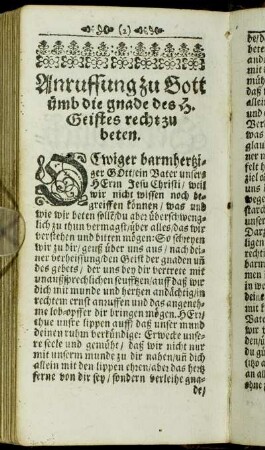 (2)
Anruffung zu Gott
ümb die gnade des H.
Geistes recht zu
beten.
O Ewiger barmhertzi-
ger GOtt/ ein Vater unsers
HErrn Jesu Christi/ weil
wir nicht wissen noch be-
greiffen können/ was und
wie wir beten sollē/ du aber überschweng-
lich zu thun vermagst/ über alles/ das wir
verstehen und bitten mögen: So schreyen
wir zu dir/ geuß über uns aus/ nach dei-
ner verheissung/ den Geist der gnaden uñ
des gebets/ der uns bey dir vertrete mit
unaußsprechlichen seufftzen/ auff daß wir
dich mit munde und hertzen andächtig/ in
rechtem ernst anruffen und dz angeneh-
me lob-opffer dir bringen mögen. HErr/
thue unsre lippen auff/ daß unser mund
deinen ruhm verkündige: Erwecke unse-
re seele und gemüht/ daß wir nicht nur
mit unserm munde zu dir nahen/ uñ dich
allein mit den lippen ehren/ aber das hertz
ferne von dir sey/ sondern verleihe gna-
de/